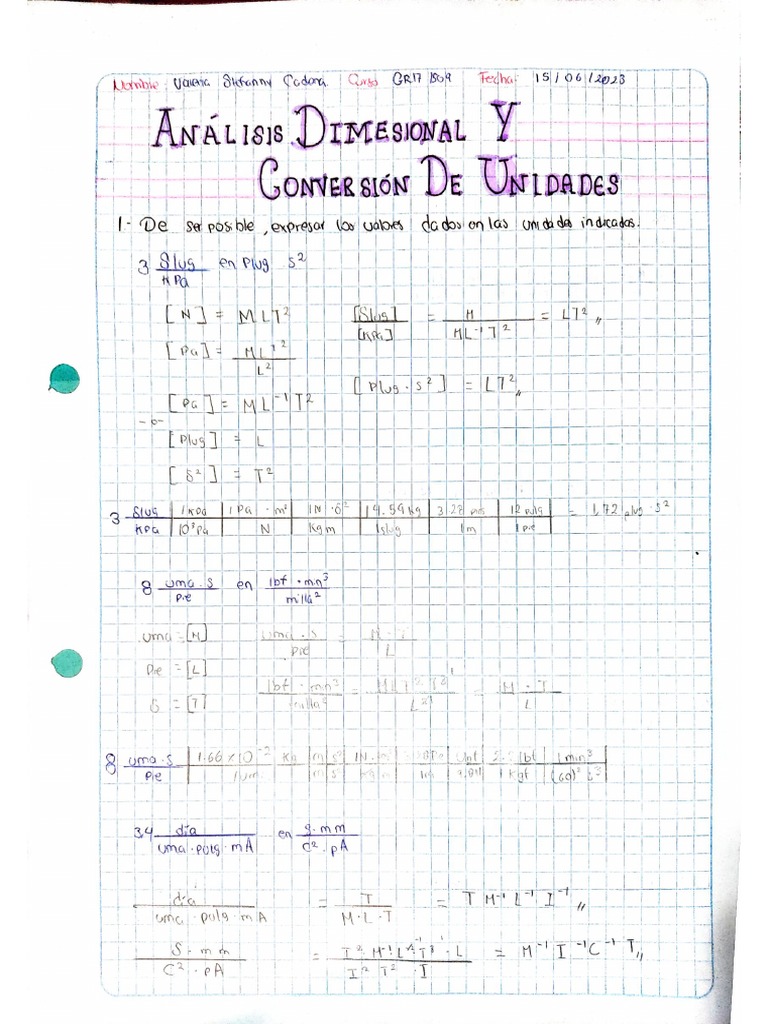 Nombre Valeria Stefanny Cadena Curso GR17 1809 Fecha: 15/06/2023
ANÁLISIS DIMESIONAL Y
CONVERSIÓN DE UNIDADES
1- De ser posible, expresar los valores dados en las unidades indicadas.
3 Slug/KPa en Plug s²
[N] = MLT² [Slug]/[KPa] = M/ML⁻¹T² = LT²,,
[Pa] = MLT²/L²
[Plug·s²] = LT²,,
[Pa] = ML⁻¹T²
-0-
[Plug] = L
[s²] = T²
3 Slug/KPa | 1KPa/10³Pa | 1Pa·m²/N | 1N·s²/Kgm | 14.59Kg/1slug | 3.28 pies/1m | 12 pulg/1 pie | = 1,72 plug·s²
8 uma·s/Pie en lbf·min³/milla²
uma = [M] uma·s/pie = M·T/L
Pie = [L]
s = [T] lbf·min³/milla² = = M·T/L
8 uma·s/Pie | 1.66x10⁻² Kg/1um | m s²/m s² | 1N | lbf/1 Kgf | 1min³/(60)³ s³
34 día/uma·pulg·mA en S·mm/C²·pA
día/uma·pulg·mA = T/M·L·T = T M⁻¹L⁻¹ I⁻¹,,
S·mm/C²·pA = I² M⁻¹L⁻²T³·L/I² T²·I = M⁻¹ I⁻¹C⁻¹ T,,